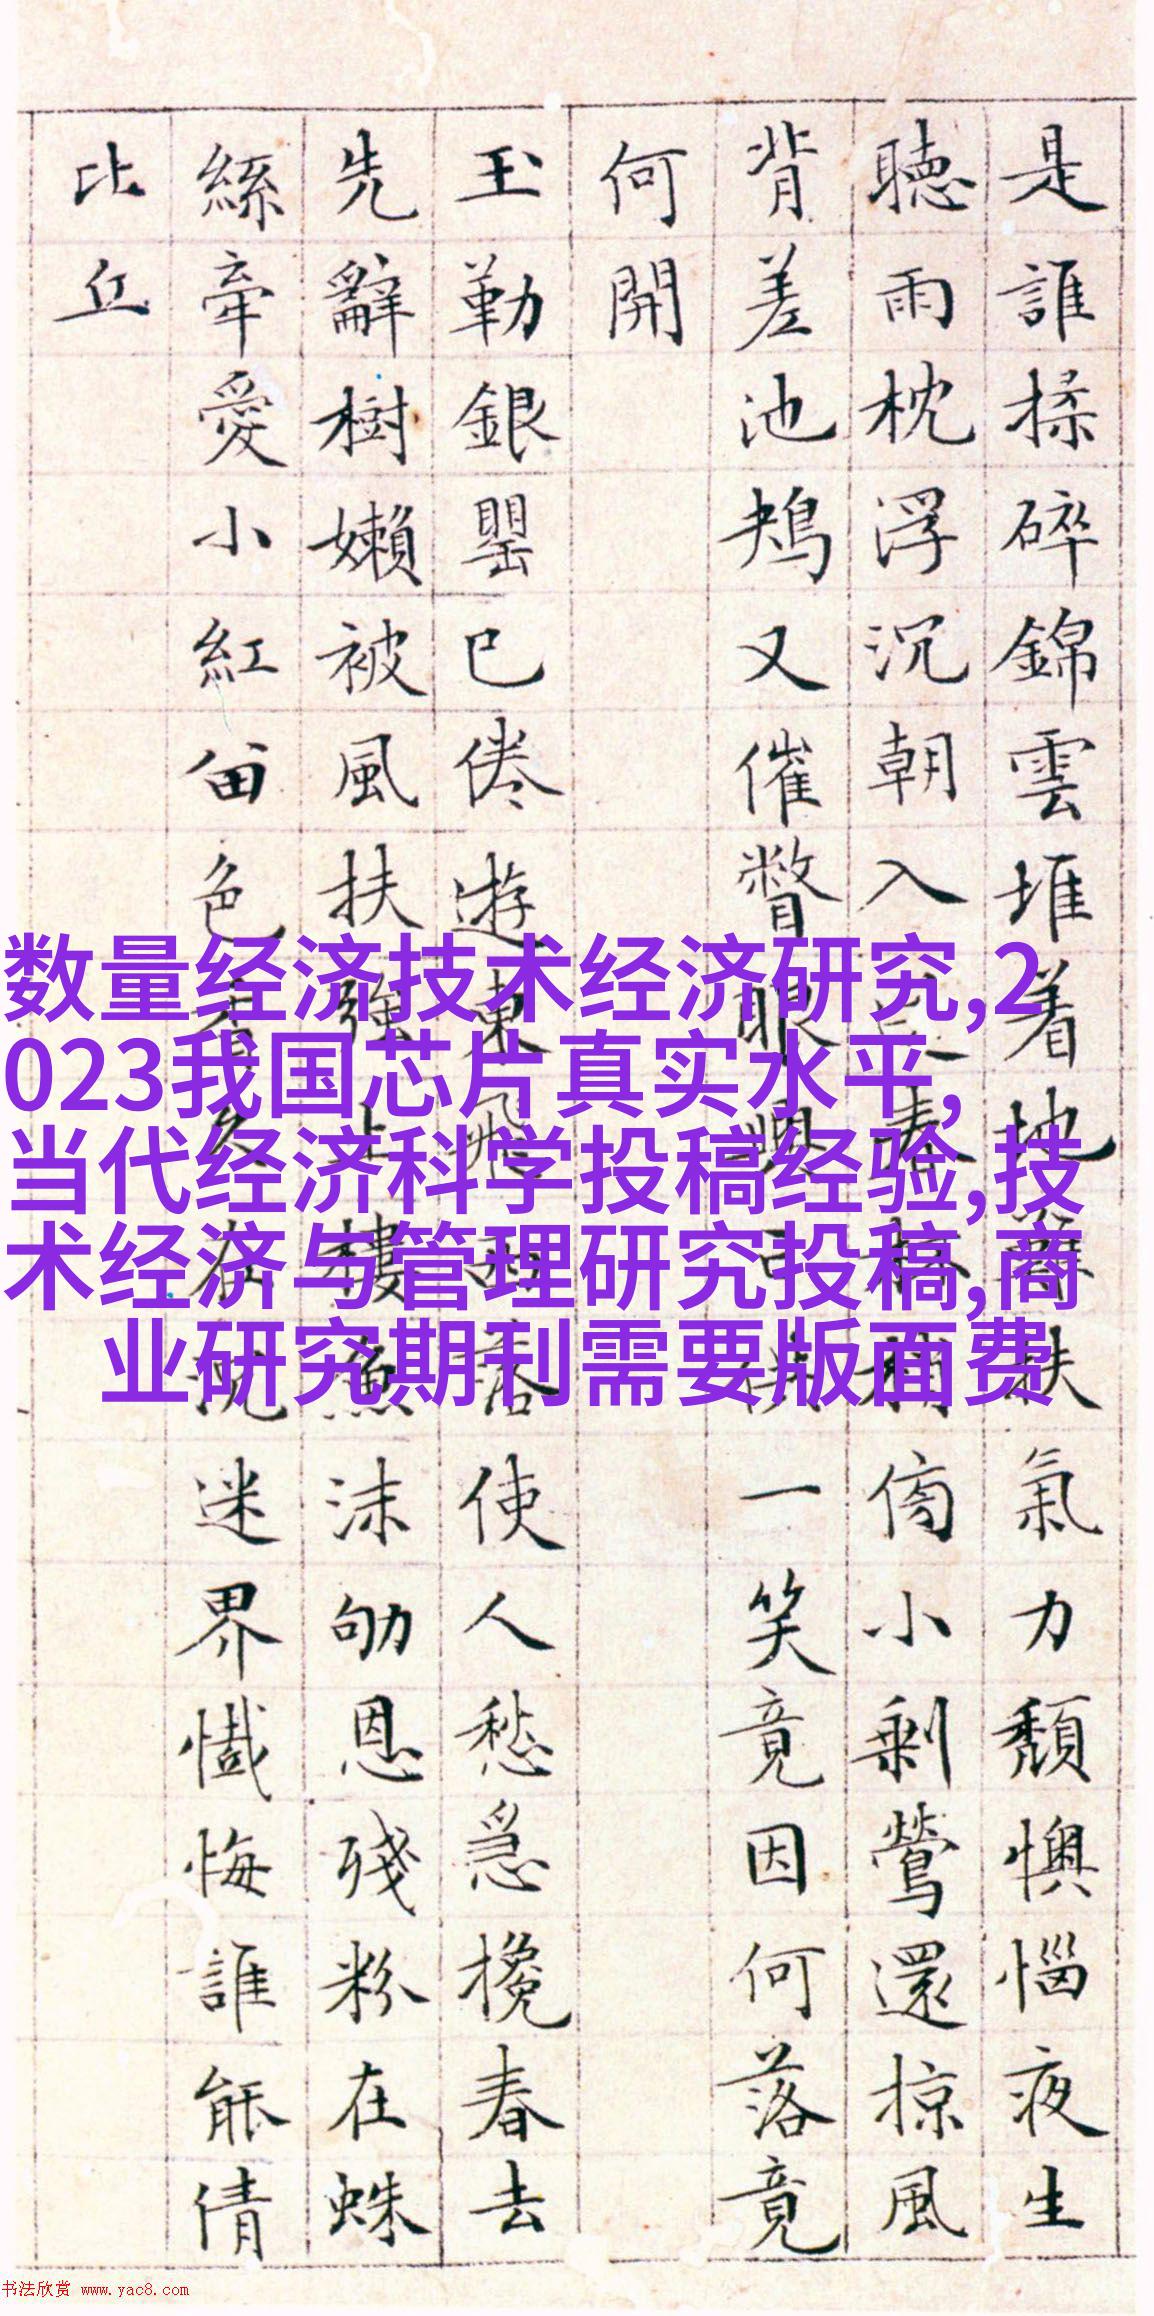 是誰揉碎錦雲堆着地難扶氣力頹懊惱夜生
聽雨枕浮沉朝入送春杯梢傍小剩鶯還掠風
背差池鳺又催瞥眼興亡供一笑竟因何落竟
何開
玉勒銀罌已倦遊東飛西落使人愁急攙春去
先辭樹嬾被風扶強上樓魚沫劬恩殘粉在蛛
絲牽愛小紅留色香久在沉迷界懺悔誰能倩
比丘
数量经济技术经济研究,2
023我国芯片真实水平,
当代经济科学投稿经验,技
术经济与管理研究投稿,商
业研究期刊需要版面费
书法欣赏 www.yac8.com